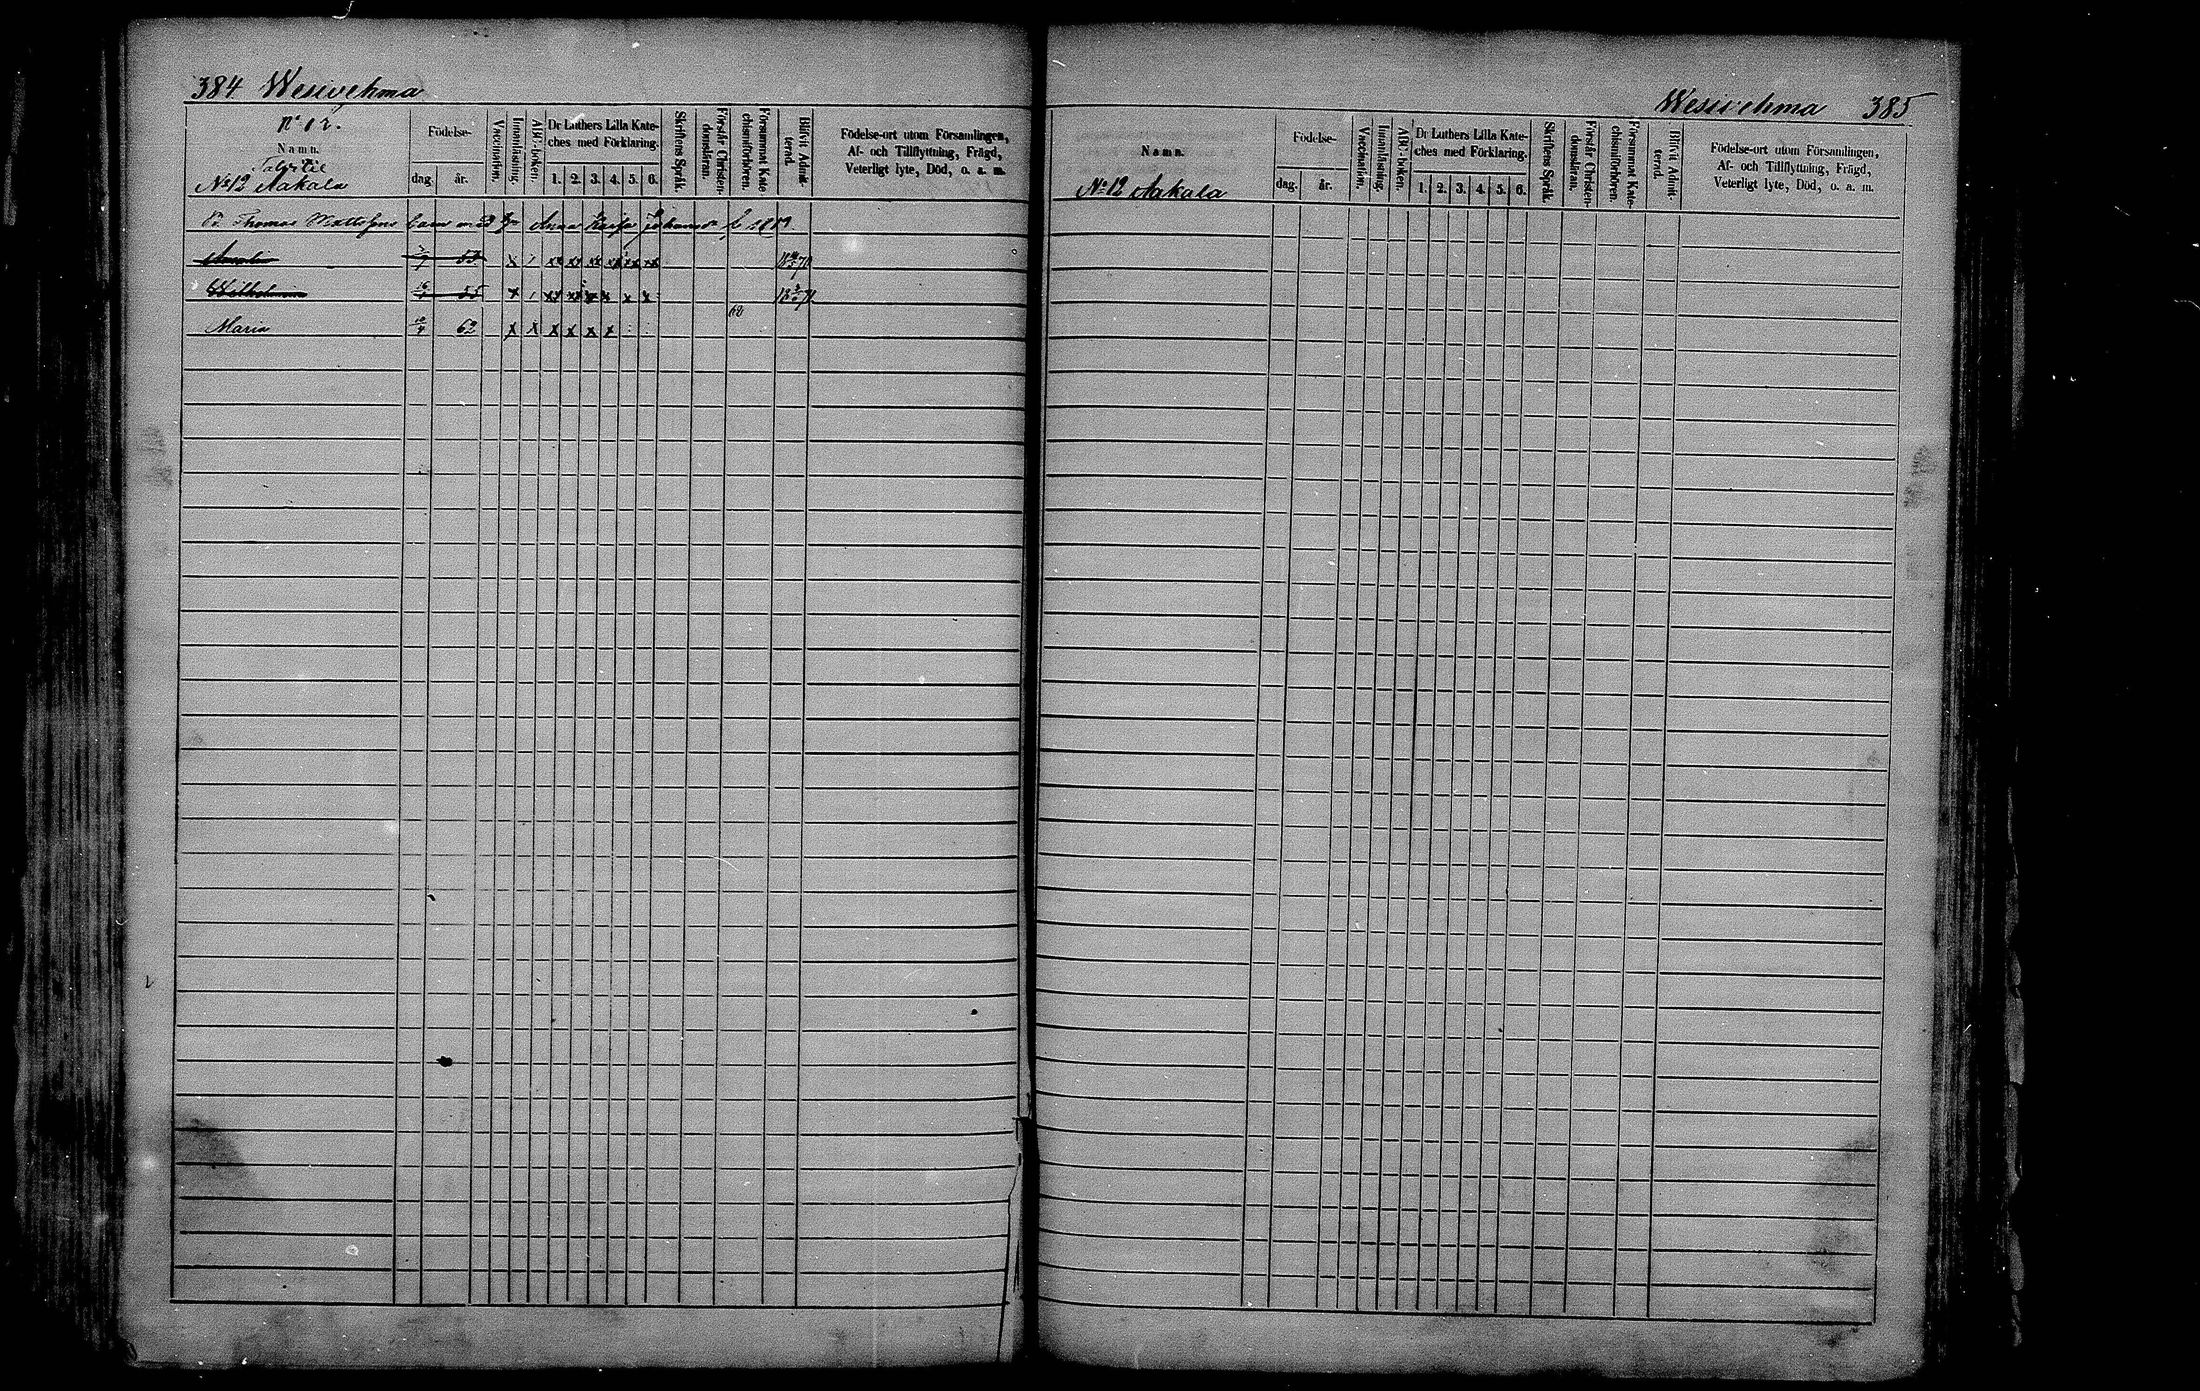 384 Wesivehma
No 12.
Namn.
No 12 Aakala
Födelse-
dag. år.
Vaccination.
Innanläsning.
ABC-boken.
Dr Luthers Lilla Kate-
ches med Förklaring.
1. 2. 3. 4. 5. 6.
Skriftens Språk.
Förstår Christen-
domsläran.
Försummat Kate-
chismiförhören.
Blifvit Admit-
terad.
Födelse-ort utom Församlingen,
Af- och Tillflyttning, Frägd,
Veterligt lyte, Död, o. a. m.
Thomas Mattssons barn med Anna Johansd
53 x / xx xx xx xx xx xx
Wilhelmina 55 x / xx xx x x x x
Maria 62 x x x x x x
Wesivehma 385
Namn.
No 12 Aakala
Födelse-
dag. år.
Vaccination.
Innanläsning.
ABC-boken.
Dr Luthers Lilla Kate-
ches med Förklaring.
1. 2. 3. 4. 5. 6.
Skriftens Språk.
Förstår Christen-
domsläran.
Försummat Kate-
chismiförhören.
Blifvit Admit-
terad.
Födelse-ort utom Församlingen,
Af- och Tillflyttning, Frägd,
Veterligt lyte, Död, o. a. m.